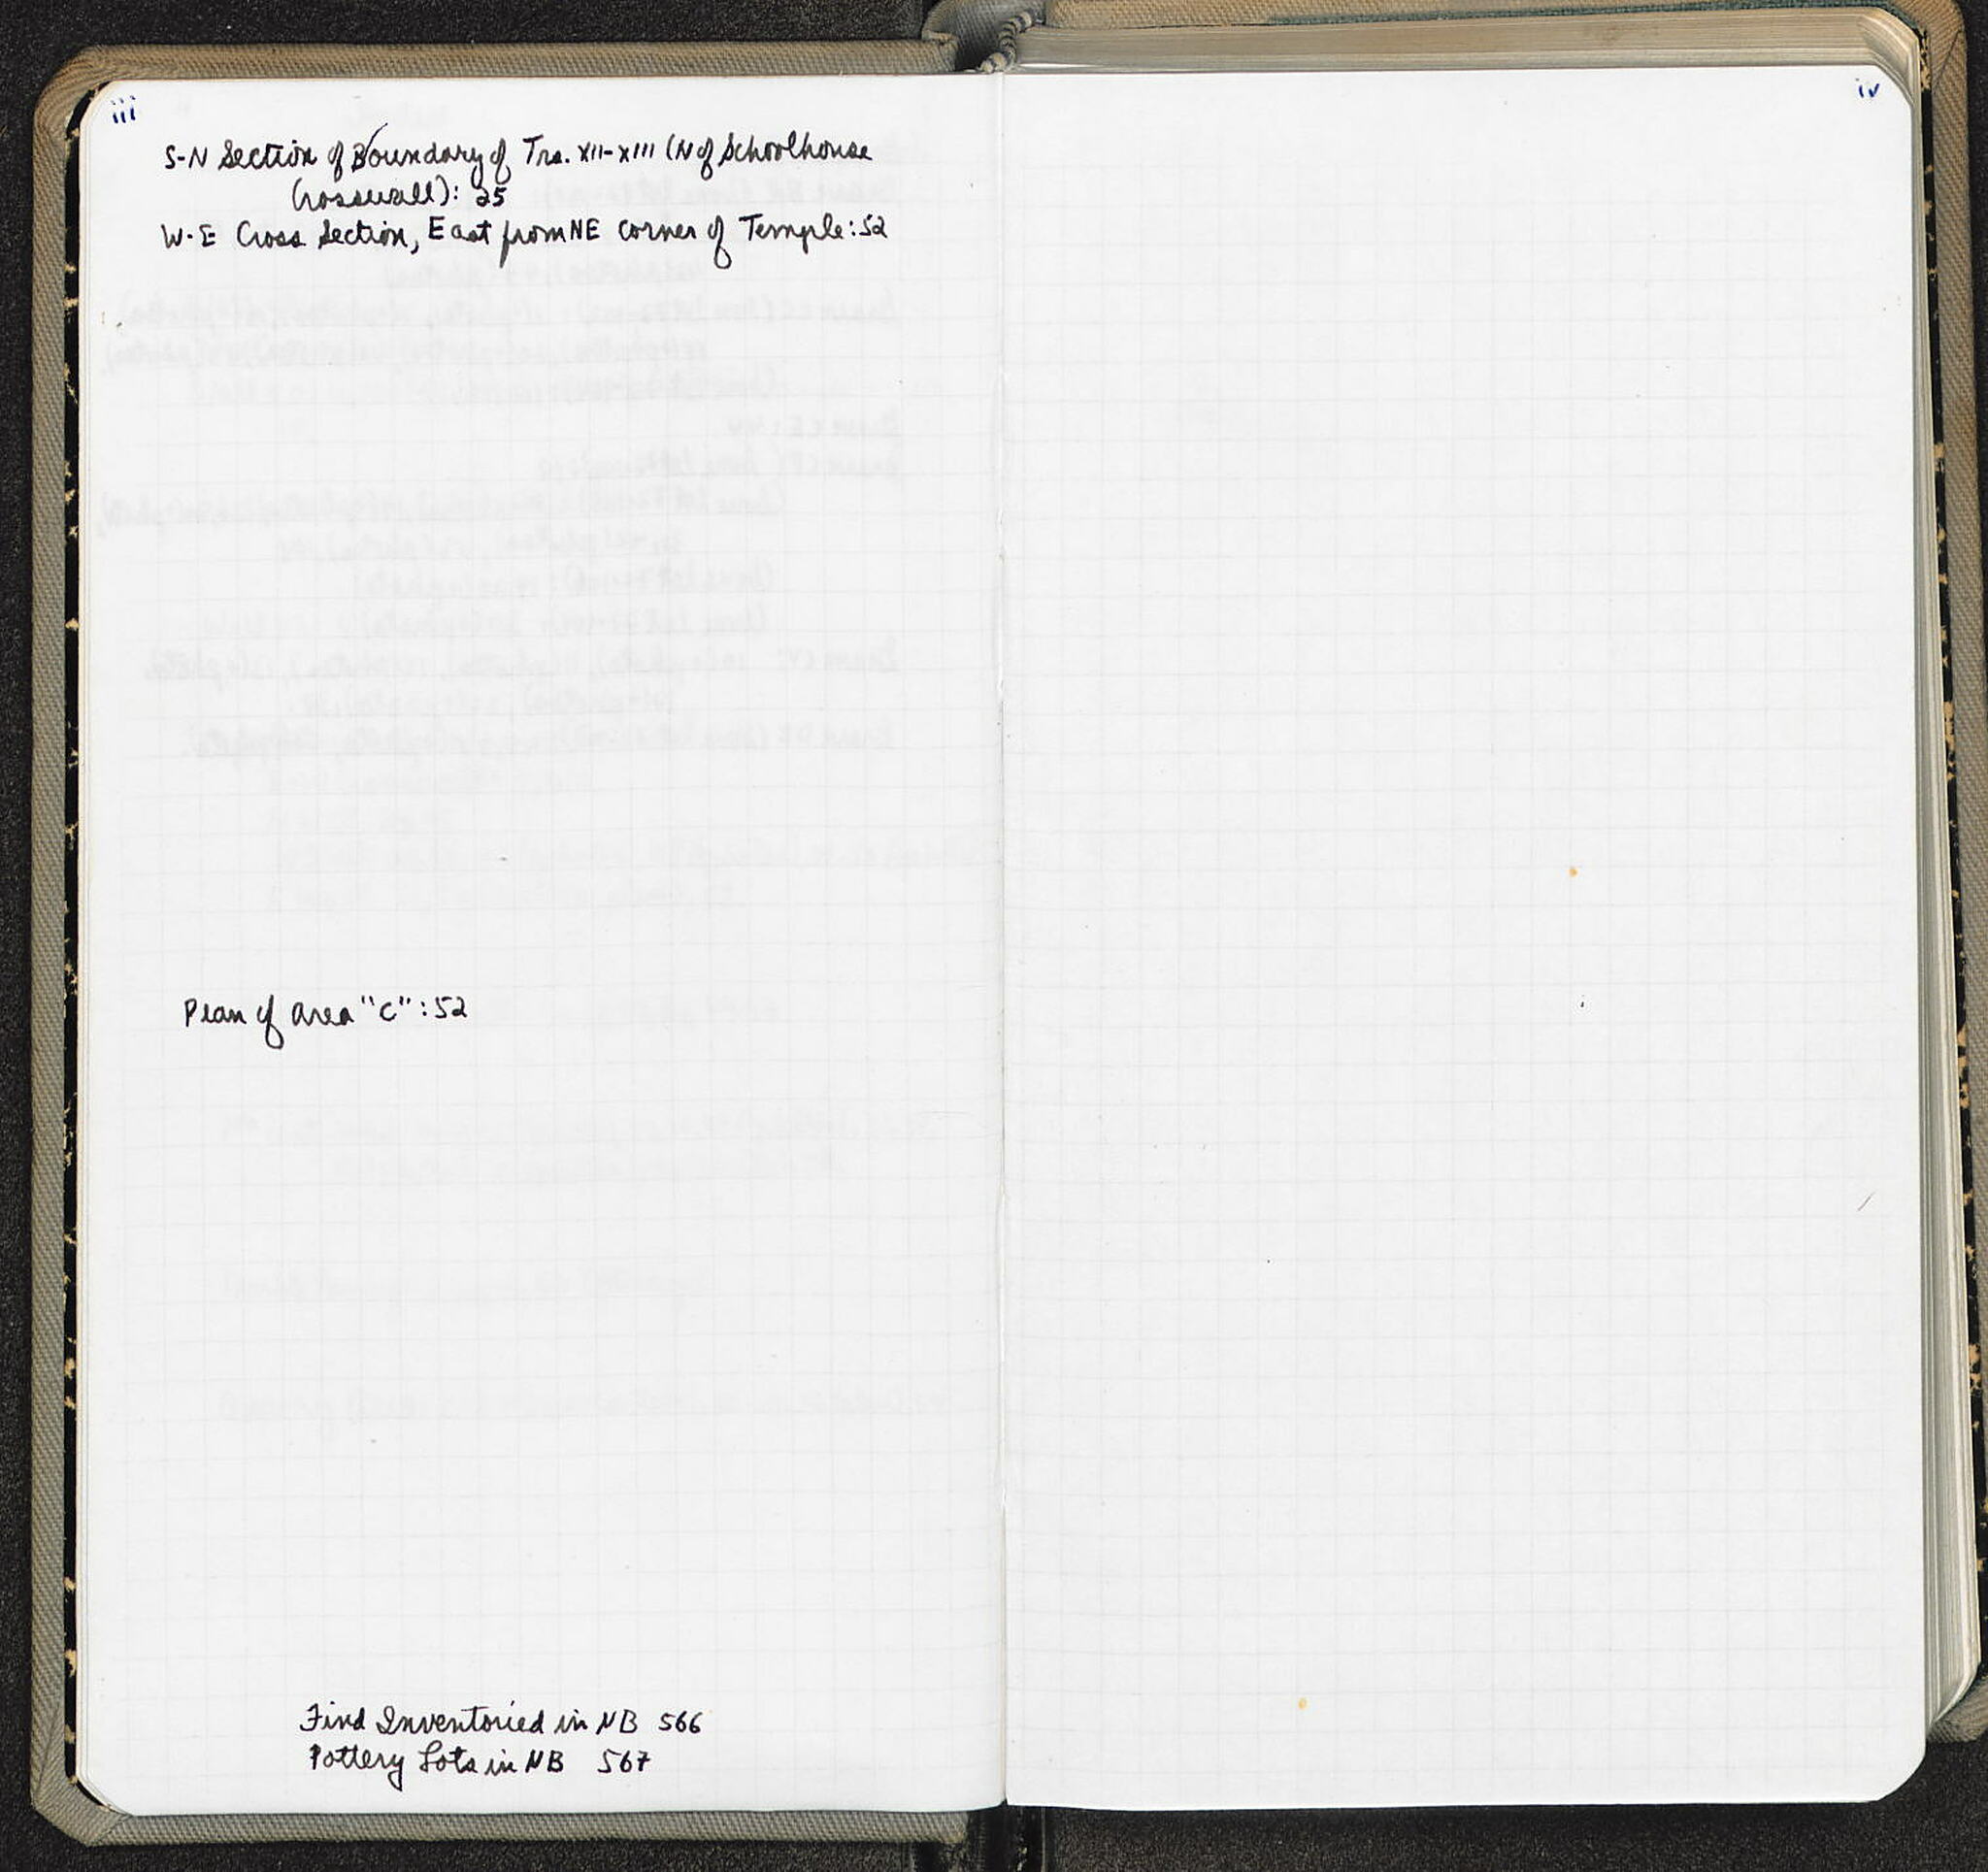 iii
S-N Section of Boundary of Trs. XII-XIII (N of Schoolhouse
Crosswall): 25
W-E Cross Section, East from NE corner of Temple: 52
Plan of area "C": 52
Find Inventoried in NB 566
Pottery Lots in NB 567
iv